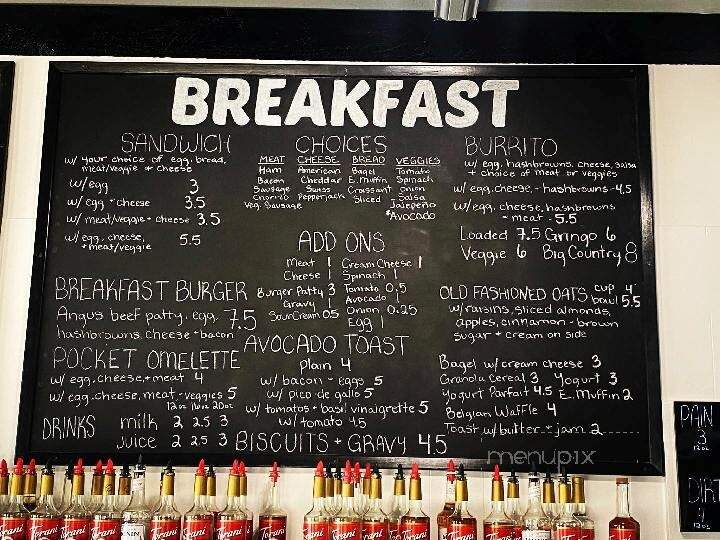 BREAKFAST
SANDWICH
w/ your choice of egg, bread,
meat/veggie + cheese
w/egg 3
w/ egg + cheese 3.5
w/ meat/veggie + cheese 3.5
w/ egg, cheese,
+ meat/veggie 5.5
CHOICES
MEAT CHEESE BREAD VEGGIES
Ham American Bagel Tomato
Bacon Cheddar E. Muffin Spinach
Sausage Swiss Croissant onion
Chorizo Pepperjack Sliced Salsa
Veg. Sausage Jalepeño
*Avocado
BURRITO
w/ egg, hashbrowns, cheese, salsa
+ choice of meat or veggies
w/ egg, cheese, + hashbrowns - 4.5
w/ egg, cheese, hashbrowns
+ meat - 5.5
Loaded 7.5 Gringo 6
Veggie 6 Big Country 8
ADD ONS
Meat 1 Cream Cheese 1
Cheese 1 Spinach 1
Burger Patty 3 Tomato 0.5
Gravy 1 Avocado 1
Sour Cream 0.5 Onion 0.25
Egg 1
BREAKFAST BURGER
Angus beef patty, egg, 7.5
hashbrowns, cheese + bacon
POCKET OMELETTE
w/ egg, cheese, + meat 4
w/ egg, cheese, meat, + veggies 5
DRINKS 12oz 16oz 20oz
milk 2 2.5 3
juice 2 2.5 3
AVOCADO TOAST
plain 4
w/ bacon + eggs 5
w/ pico de gallo 5
w/ tomatoes + basil vinaigrette 5
w/ tomato 4.5
BISCUITS + GRAVY 4.5
OLD FASHIONED OATS cup 4
bowl 5.5
w/ raisins, sliced almonds,
apples, cinnamon + brown
sugar + cream on side
Bagel w/ cream cheese 3
Granola Cereal 3 Yogurt 3
Yogurt Parfait 4.5 E. Muffin 2
Belgian Waffle 4
Toast w/ butter + jam 2
menupix
PAIN
3
12oz
DIRT
4
12oz
Torani Torani Torani Torani Torani Torani Torani Torani